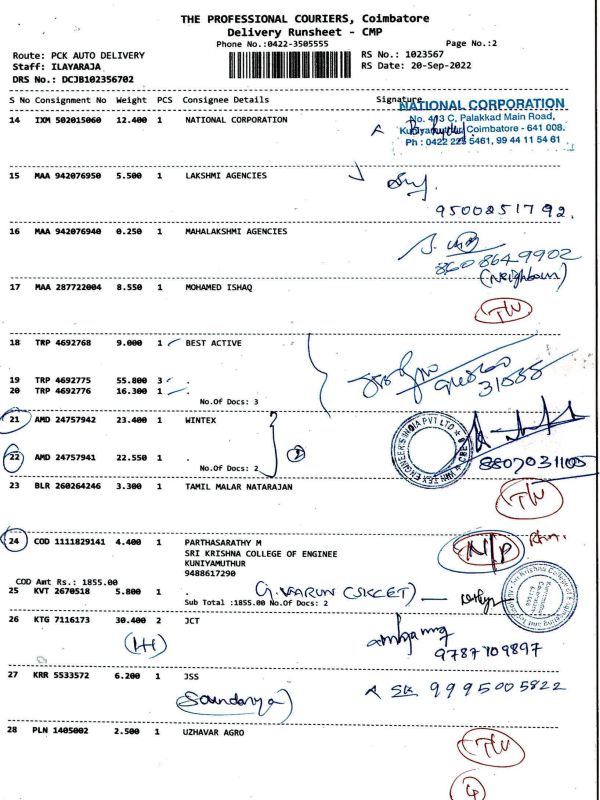 THE PROFESSIONAL COURIERS, Coimbatore
Delivery Runsheet - CMP
Phone No.:0422-3505555
Page No.:2
Route: PCK AUTO DELIVERY
RS No.: 1023567
Staff: ILAYARAJA
RS Date: 20-Sep-2022
DRS No.: DCJB102356702
S No Consignment No Weight PCS Consignee Details Signature
NATIONAL CORPORATION
14 IXM 502015060 12.400 1 NATIONAL CORPORATION
No. 4/3 C, Palakkad Main Road,
Kuniyamuthur, Coimbatore - 641 008.
Ph : 0422 225 5461, 99 44 11 54 61
15 MAA 942076950 5.500 1 LAKSHMI AGENCIES
9500851792.
16 MAA 942076940 0.250 1 MAHALAKSHMI AGENCIES
860 864 9902
(Neighbour)
17 MAA 287722004 8.550 1 MOHAMED ISHAQ
18 TRP 4692768 9.000 1 BEST ACTIVE
19 TRP 4692775 55.800 3 .
20 TRP 4692776 16.300 1 .
No.Of Docs: 3
21 AMD 24757942 23.400 1 WINTEX
22 AMD 24757941 22.550 1 .
No.Of Docs: 2
8807031105
23 BLR 260264246 3.300 1 TAMIL MALAR NATARAJAN
24 COD 1111829141 4.400 1 PARTHASARATHY M
N/P
SRI KRISHNA COLLEGE OF ENGINEE
KUNIYAMUTHUR
9488617290
COD Amt Rs.: 1855.00
25 KVT 2670518 5.800 1 .
G.VARUN (SKCET)
Sub Total :1855.00 No.Of Docs: 2
26 KTG 7116173 30.400 2 JCT
9787709897
27 KRR 5533572 6.200 1 JSS
9995005822
Soundarya
28 PLN 1405002 2.500 1 UZHAVAR AGRO